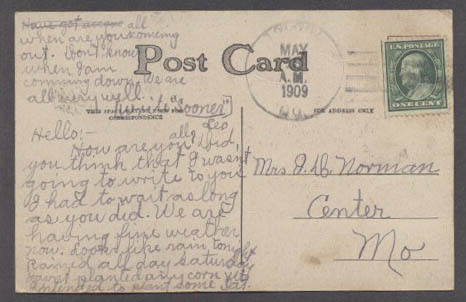 Have got accon all
when are you komeing
out. Dont know
when I am
comeing down. We are
all very well.
write sooner
Leo
Post Card
MAY
A.M.
1909
MO.
U.S. POSTAGE
ONE CENT
THIS SPACE
CORRESPONDENCE
FOR ADDRESS ONLY
Hello:-
How are you all did
you think that I wasn't
going to write to you
I had to wait as long
as you did. We are
having fine weather
now. Looks like rain tonight
Rained all day Saturday
havnt planted any corn yet
intended to plant some Sat.
Mrs J. D. Norman
Center
Mo